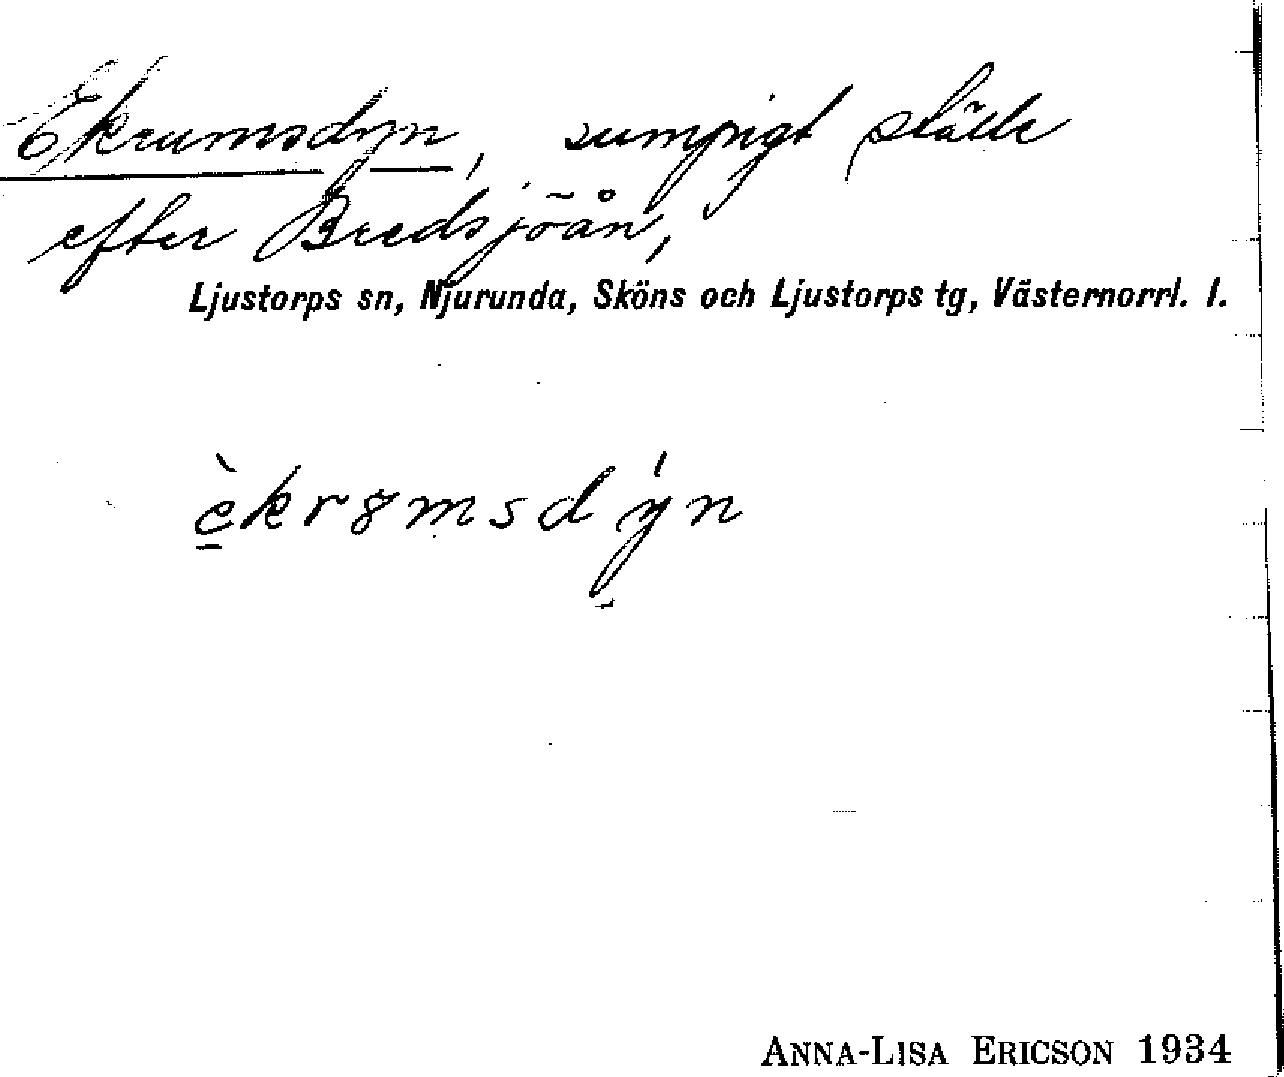 Ekrumsdyn, sumpigt ställe
efter Bredsjöån,
Ljustorps sn, Njurunda, Sköns och Ljustorps tg, Västernorrl. l.
è̱kr8msdý̱n
ANNA-LISA ERICSON 1934